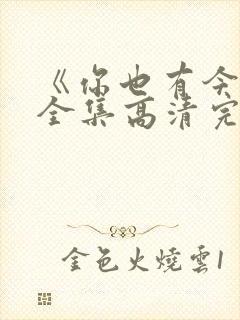 《你也有今
全集高清完
金色火燒雲1